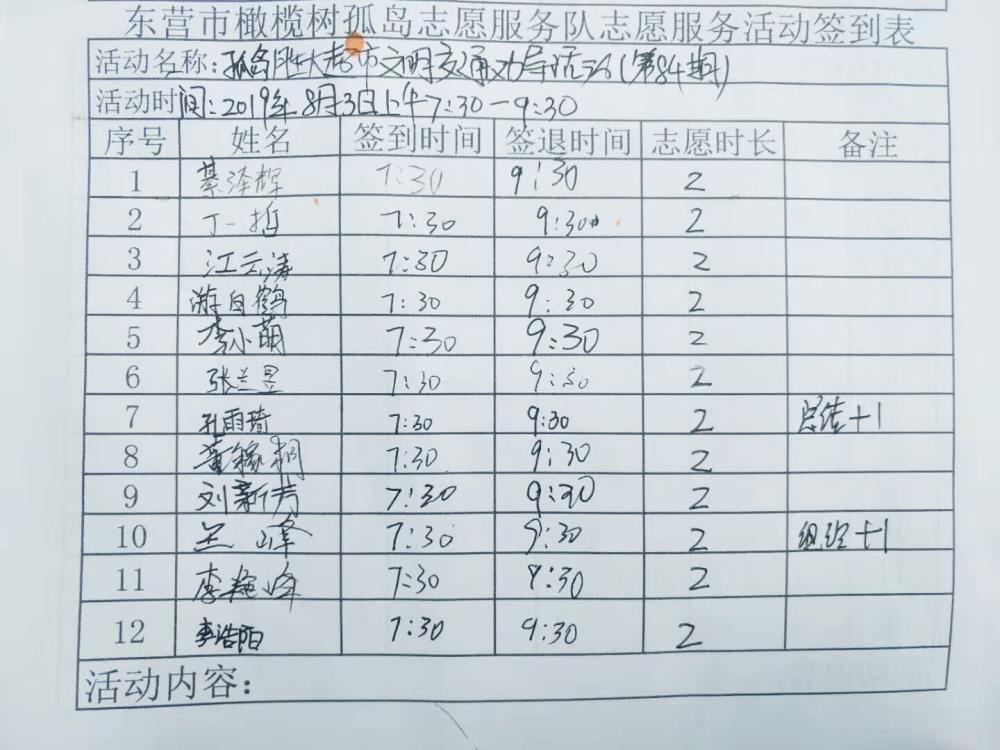 东营市橄榄树孤岛志愿服务队志愿服务活动签到表
活动名称:孤岛胜大超市文明交通劝导活动(第84期)
活动时间:2019年8月3日上午7:30-9:30
序号 姓名 签到时间 签退时间 志愿时长 备注
1 綦泽辉 7:30 9:30 2
2 丁一哲 7:30 9:30 2
3 江云涛 7:30 9:30 2
4 游白鹤 7:30 9:30 2
5 李小萌 7:30 9:30 2
6 张兰昱 7:30 9:30 2
7 孔雨琦 7:30 9:30 2 总结+1
8 董稼桐 7:30 9:30 2
9 刘新芳 7:30 9:30 2
10 兰峰 7:30 9:30 2 组织+1
11 李艳峰 7:30 9:30 2
12 李浩阳 7:30 9:30 2
活动内容: